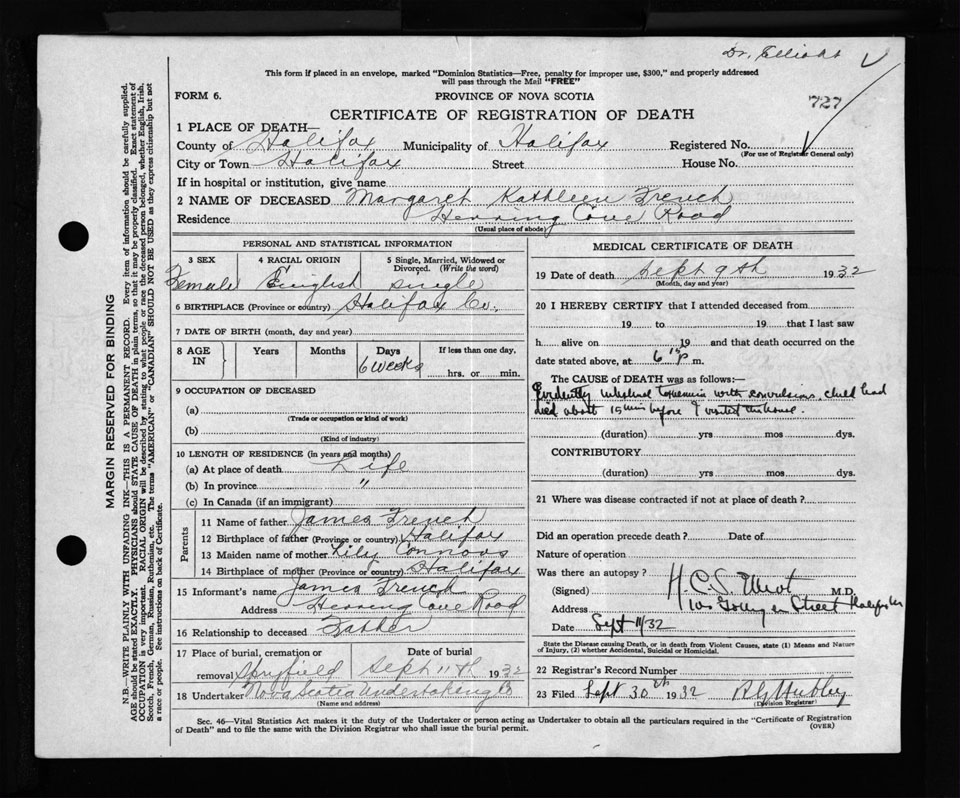 Dr. Elliott
This form if placed in an envelope, marked "Dominion Statistics—Free, penalty for improper use, $300," and properly addressed
will pass through the Mail "FREE"
FORM 6.
PROVINCE OF NOVA SCOTIA
727
CERTIFICATE OF REGISTRATION OF DEATH
1 PLACE OF DEATH—
County of Halifax Municipality of Halifax Registered No.
(For use of Registrar General only)
City or Town Halifax Street House No.
If in hospital or institution, give name
2 NAME OF DECEASED Margaret Kathleen French
Residence Herring Cove Road
(Usual place of abode)
PERSONAL AND STATISTICAL INFORMATION
3 SEX 4 RACIAL ORIGIN 5 Single, Married, Widowed or
Divorced. (Write the word)
Female English single
6 BIRTHPLACE (Province or country) Halifax Co.
7 DATE OF BIRTH (month, day and year)
8 AGE IN Years Months Days If less than one day,
6 weeks hrs. or min.
9 OCCUPATION OF DECEASED
(a)
(Trade or occupation or kind of work)
(b)
(Kind of industry)
10 LENGTH OF RESIDENCE (in years and months)
(a) At place of death Life
(b) In province "
(c) In Canada (if an immigrant)
Parents
11 Name of father James French
12 Birthplace of father (Province or country) Halifax
13 Maiden name of mother Lily Connors
14 Birthplace of mother (Province or country) Halifax
15 Informant's name James French
Address Herring Cove Road
16 Relationship to deceased Father
17 Place of burial, cremation or Date of burial
removal Spryfield Sept 11th 1932
18 Undertaker Nova Scotia Undertaking Co
(Name and address)
MEDICAL CERTIFICATE OF DEATH
19 Date of death Sept 9th 1932
(Month, day and year)
20 I HEREBY CERTIFY that I attended deceased from
19 to 19 that I last saw
h alive on 19 and that death occurred on the
date stated above, at 6 p m.
The CAUSE of DEATH was as follows:—
Evidently intestinal toxaemia with convulsions child had
died about 15 min before I visited the house.
(duration) yrs mos dys.
CONTRIBUTORY
(duration) yrs mos dys.
21 Where was disease contracted if not at place of death?
Did an operation precede death? Date of
Nature of operation
Was there an autopsy?
(Signed) H. C. S. Elliot M.D.
Address Street Halifax
Date Sept 11/32
State the Disease causing Death, or in death from Violent Causes, state (1) Means and Nature
of Injury, (2) whether Accidental, Suicidal or Homicidal.
22 Registrar's Record Number
23 Filed Sept 30th 1932
(Division Registrar)
Sec. 46—Vital Statistics Act makes it the duty of the Undertaker or person acting as Undertaker to obtain all the particulars required in the "Certificate of Registration
of Death" and to file the same with the Division Registrar who shall issue the burial permit.
(OVER)
MARGIN RESERVED FOR BINDING
N.B.—WRITE PLAINLY WITH UNFADING INK—THIS IS A PERMANENT RECORD. Every item of information should be carefully supplied.
AGE should be stated EXACTLY. PHYSICIANS should STATE CAUSE OF DEATH in plain terms, so that it may be properly classified. Exact statement of
OCCUPATION is very important. RACIAL ORIGIN will be described by stating to what people or race the deceased person belonged, whether English, Irish,
Scotch, French, German, Russian, Ruthenian, etc. The terms "AMERICAN" or "CANADIAN" SHOULD NOT BE USED as they express citizenship but not
a race or people. See instructions on back of Certificate.